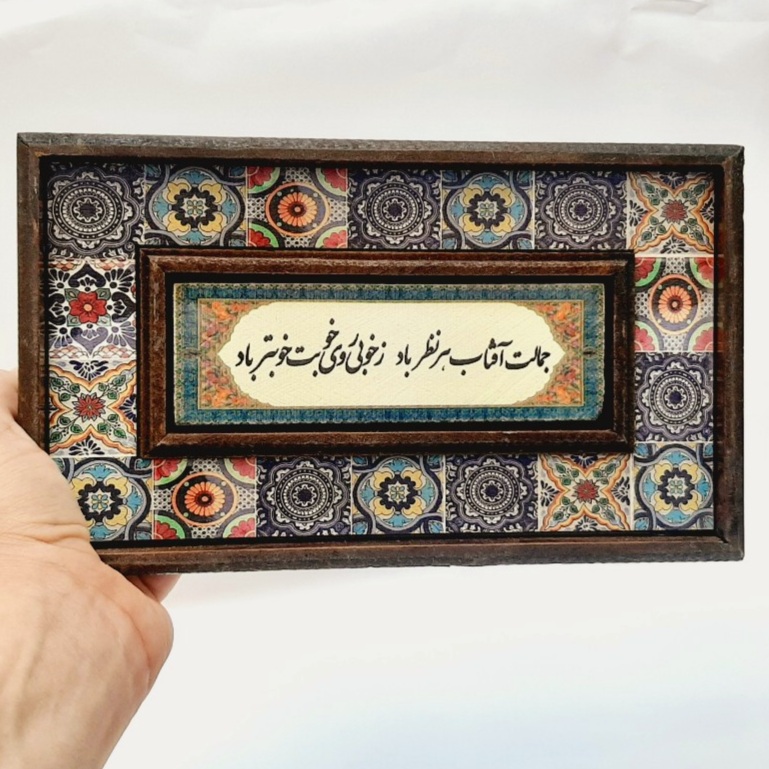 جمالت آفتاب هر نظر باد زخوبی روی خوبت خوبتر باد